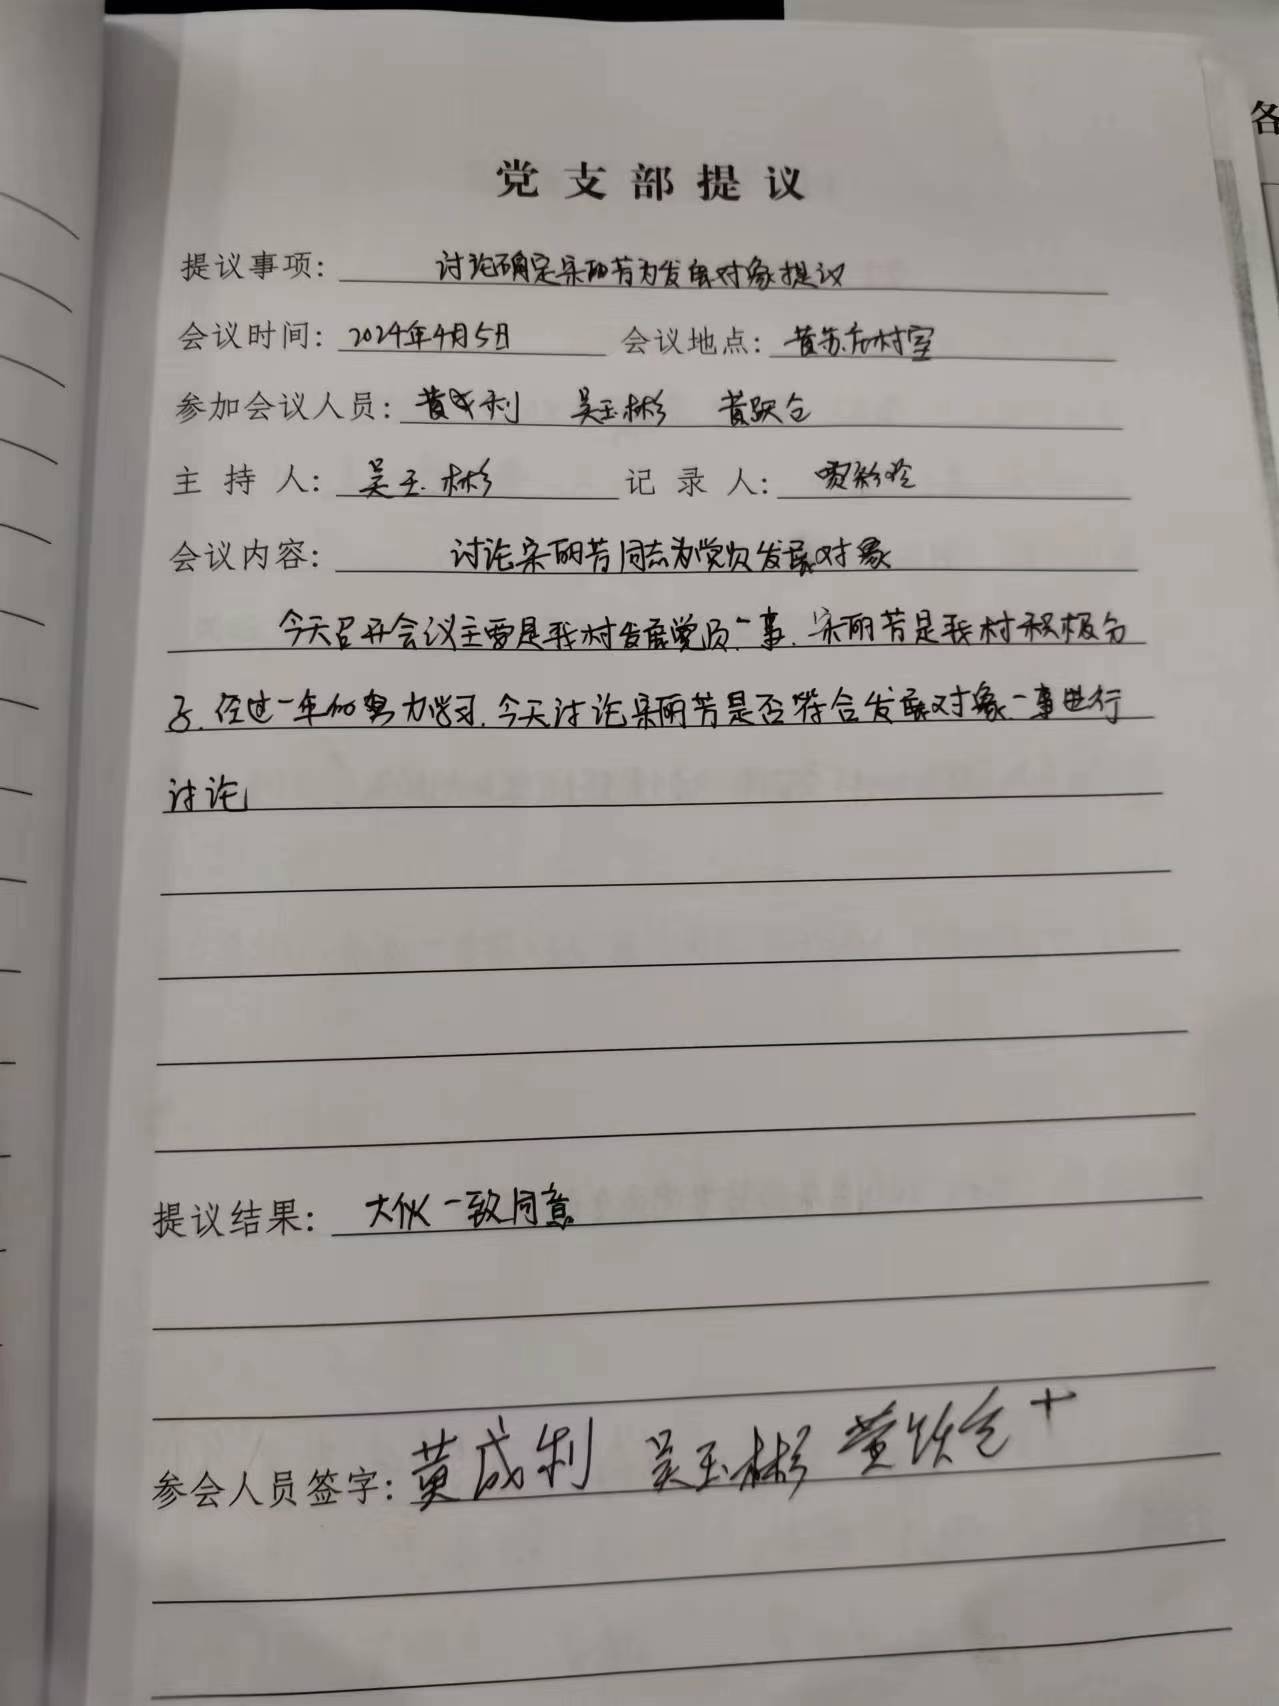 党支部提议
提议事项: 讨论确定宋丽芳为发展对象提议
会议时间: 2024年4月5日 会议地点: 黄苏禾村室
参加会议人员: 黄成利 吴玉彬 黄跃仓
主持人: 吴玉彬 记录人:
会议内容: 讨论宋丽芳同志为党员发展对象
今天召开会议主要是我村发展党员一事.宋丽芳是我村积极分
子.经过一年的努力学习.今天讨论宋丽芳是否符合发展对象一事进行
讨论
提议结果: 大伙一致同意
参会人员签字: 黄成利 吴玉彬 黄跃仓
各